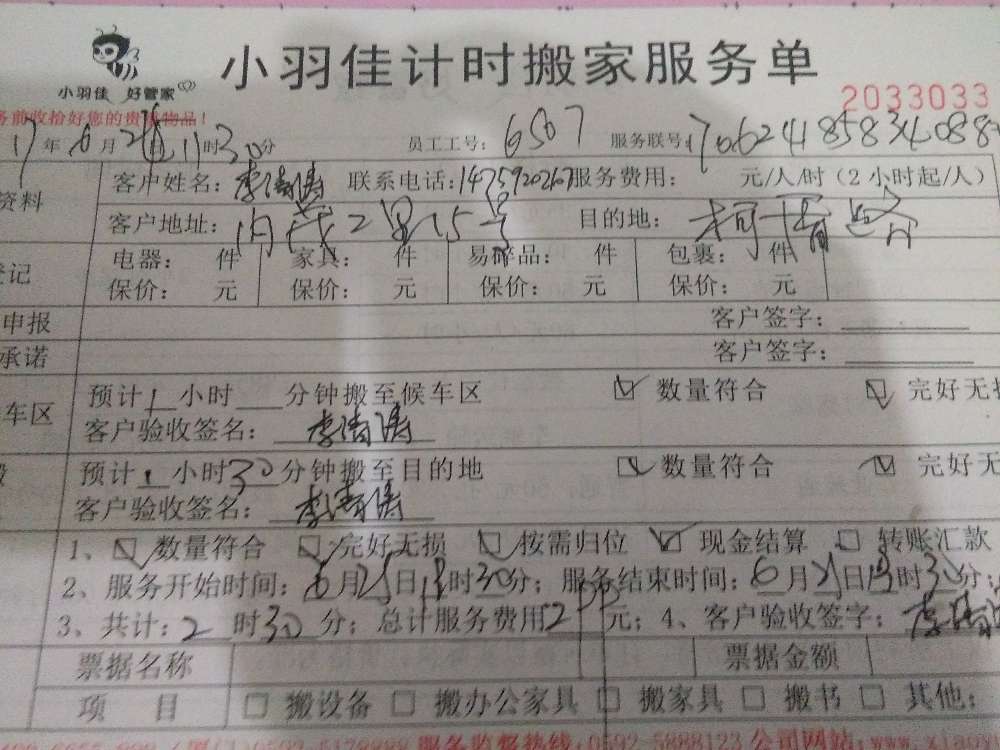 小羽佳计时搬家服务单
小羽佳 好管家
2033033
务前收拾好您的贵重物品!
17年6月 11时30分 员工工号: 6507 服务联号:
资料 客户姓名:李清涛 联系电话:1475920267 服务费用: 元/人/时(2小时起/人)
客户地址: 2里15号 目的地: 路
登记 电器: 件 家具: 件 易碎品: 件 包裹: 件
保价: 元 保价: 元 保价: 元 保价: 元
申报 客户签字:
承诺 客户签字:
车区 预计1小时 分钟搬至候车区 ☑ 数量符合 ☑ 完好无损
客户验收签名: 李清涛
预计1小时30分钟搬至目的地 ☑ 数量符合 ☑ 完好无
客户验收签名: 李清涛
1、☑数量符合 ☑完好无损 ☑按需归位 ☑现金结算 □转账汇款
2、服务开始时间:6月25日 时30分;服务结束时间:6月 日 时30分;
3、共计:2时30分;总计服务费用 元;4、客户验收签字:李清涛
票据名称 票据金额
项 目 □搬设备 □搬办公家具 □搬家具 □搬书 □其他:
服务监督热线:0592-5888123 公司网站:www.xiaoyu